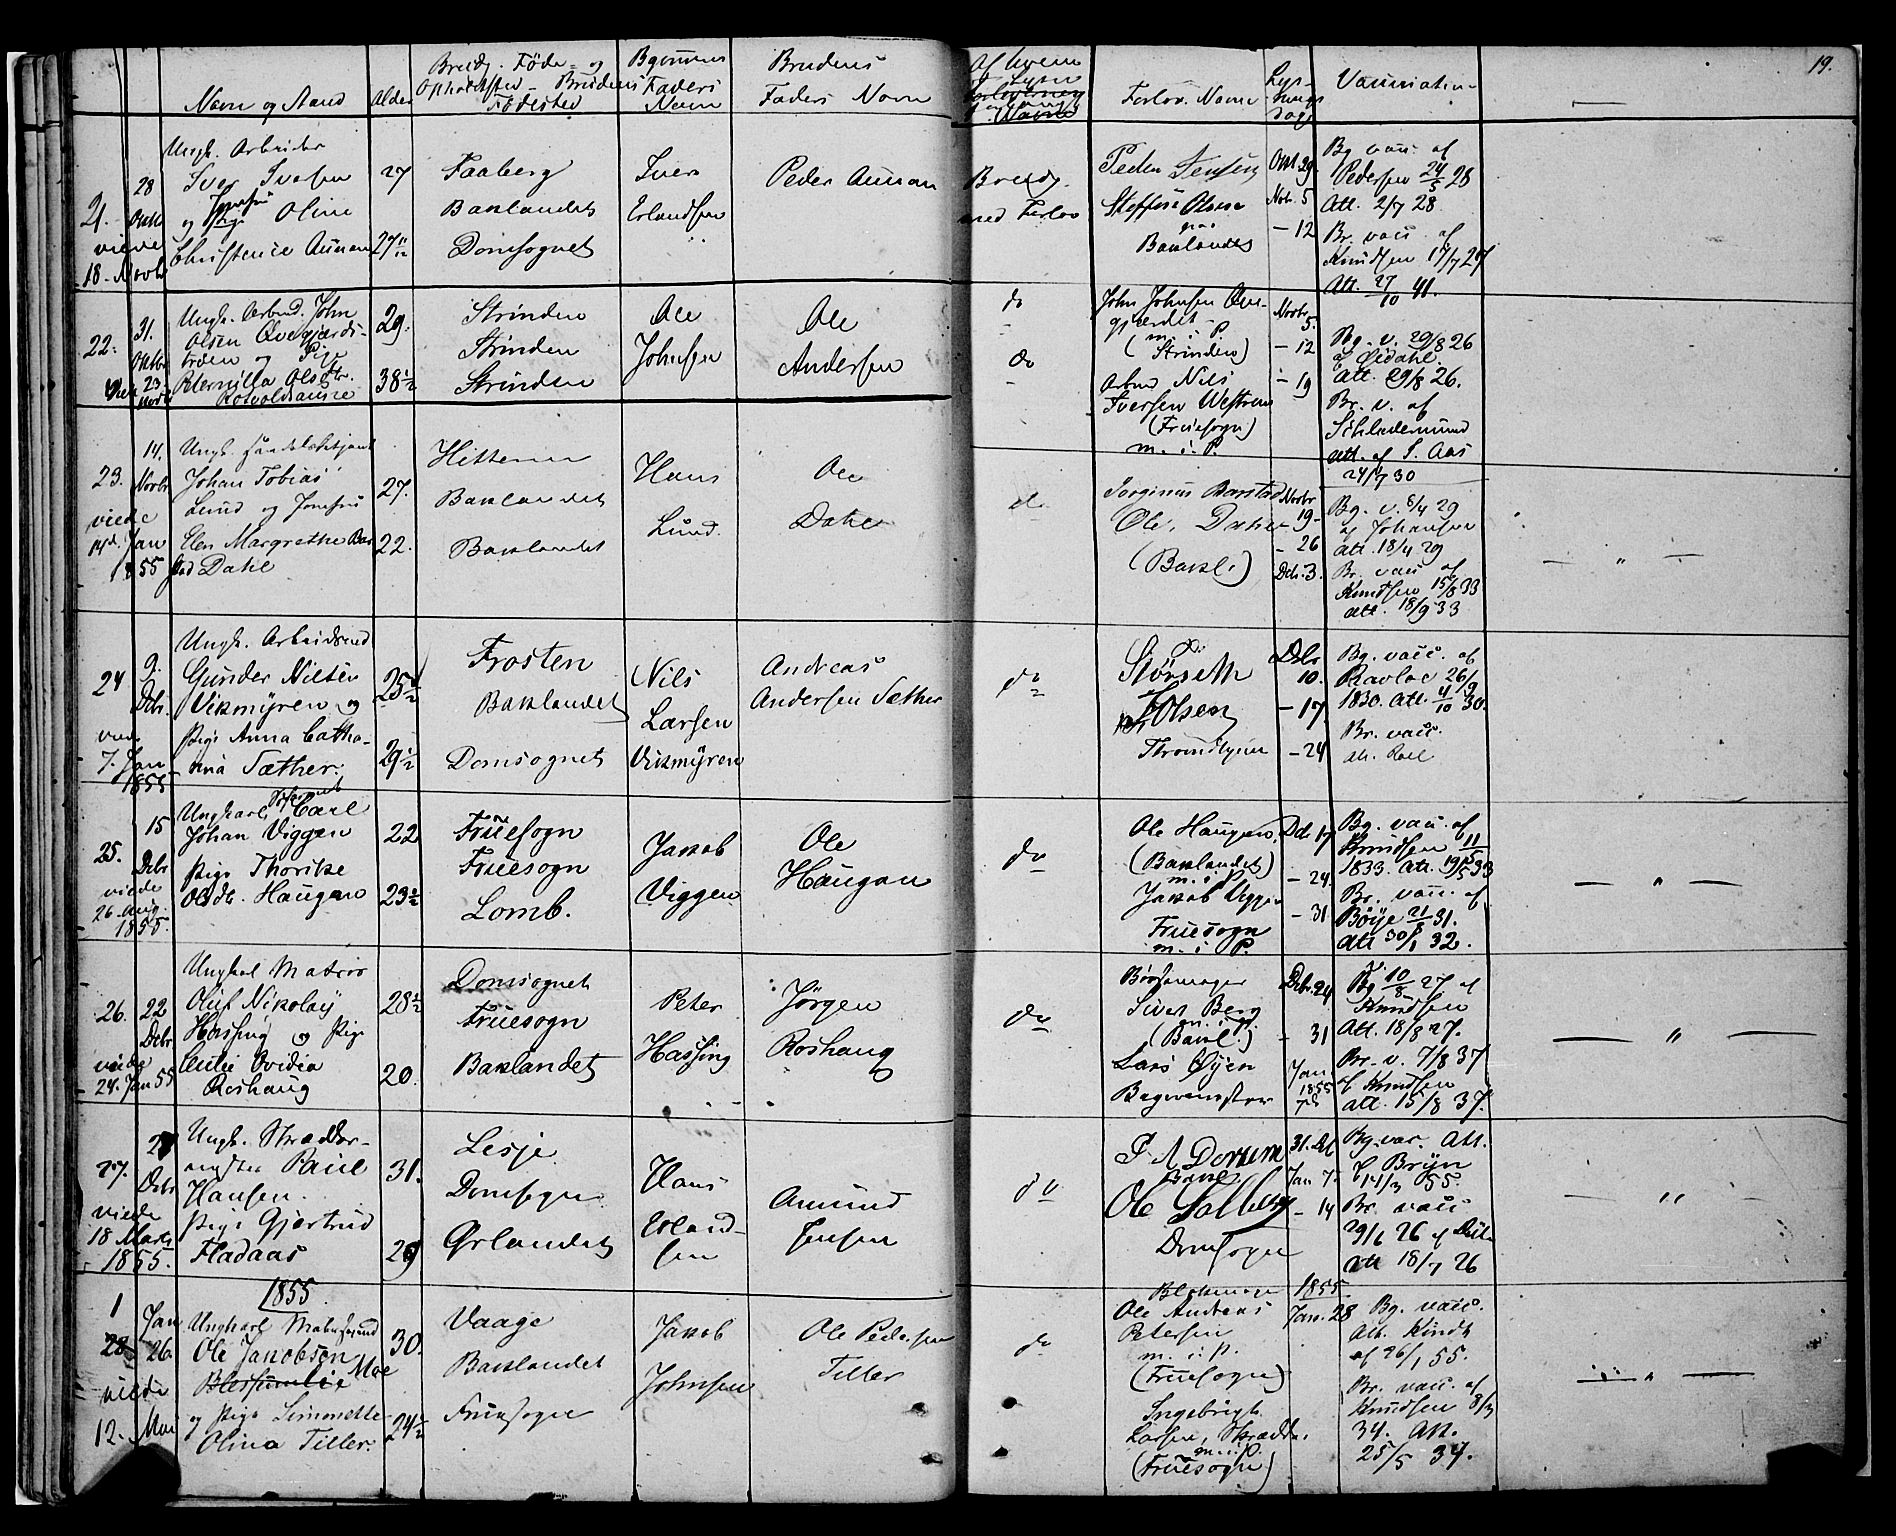 19.
Navn og Stand
Alder
Brudg. Föde- og
Opholdsted - Brudens
Födested
Bgommens
Faders
Navn
Brudens
Faders Navn
Af hvem
Forlov. Navne
Lys-
nings
dage
Vaccination
21.
28
Oktbr
viede
18. Novbr
Ungk. Arbeider
Iver Iversen
og Pige Oline
Christence Aunan
27
27 11/12
Faaberg
Baklandet
Domsognet
Iver
Erlandsen
Peder Aunan
Brudg.
med Forlov
Peder Jensen
Steffen Olsen
Baklandet
Okt. 29
Nobr. 5
- 12
Bg. vacc. af
Pedersen 24/5 28
Att. 2/7 28
Br. vacc. af
Knudsen 17/7 27
Att. 27/10 41.
22.
31.
Oktbr
23
Ungk. Arbeid. John
Olsen Övegjærds-
træen og Pige
Peternilla Olsdtr.
29.
38 1/2
Strinden
Strinden
Strinden
Ole
Johnsen
Ole
Andersen
do
do
John Johnsen Öve-
gjærdet
m. i. P.
(Strinden)
Arbeid Nils
Iversen Westrum
(Fruesogn)
m. i. P.
Novbr
5.
- 12
- 19
Bg. v. 29/8 26
af Öidahl.
Att. 29/8 26.
Br. v. af
Att. af S. Aas
24/7 30
23.
14.
Novbr
viede
14d. Jan
1855
Ungk. Handelsbetjent
Johan Tobias
Lund og Jomfru
Elen Margrethe Bar
stad Dahl
27.
22.
Hitteren
Baklandet
Baklandet
Hans
Lund.
Ole
Dahl
do
Jörginus Barstad
Ole Dahl
(Bakl.)
Novbr
19-
- 26
Dcb. 3.
Bg. v. 6/4 29
af Johansen
Att. 18/4 29
Br. vacc af
Knudsen 15/8 33
att. 18/9 33
24
9.
Dcbr.
7. Jan
1855
Ungk. Arbeidsmd
Gunder Nilsen
Vikmyren og
Pige Anna Catha-
rina Sæther.
25 1/2
29 1/2
Frosten
Baklandet
Domsognet
Nils
Larsen
Vikmyren
Andreas
Andersen Sæther
do
Störseth
Olsen
Throndhjem
Dcbr
10.
- 17
- 24
Bg. vacc. af
26/9
1830. Att. 4/10 30.
Br. vacc.
25.
15
Dcbr
viede
26. Aug.
1855.
Ungkarl Carl
Johan Viggen
Pige Thorike
Olsdtr. Haugan
22
23 1/2
Fruesogn
Fruesogn
Lomb.
Jakob
Viggen
Ole
Haugan
do
Ole Haugan
(Baklandet)
m. i. P.
Jakob Viggen
Fruesogn
m. i. P.
Dcb. 17
- 24.
- 31
Bg. vacc. af
Knudsen 11/5
1833. Att. 19/5 33
Br. vacc. af
Böije 21/8 31.
Att 30/1 32.
26.
22
Dcbr
viede
24. Jan 55
Ungkarl Matros
Oluf Nikolay
Hassing og Pige
Ovidia
Roshaug
28 1/2
20.
Domsognet
Fruesogn
Baklandet
Peter
Hassing
Jörgen
Roshaug
do
Börsemager
Siver Berg
m. i. P.
(Bakl.)
Lars Öyen
Dcbr. 24
- 31
Jan
1855
7d
Bg. 10/8 27 af
Knudsen
Att. 18/8 27.
Br. v. 7/8 37
af Knudsen
att. 15/8 37.
27.
Dcbr
viede
18 Marts
1855.
Ungk. Skrædder-
Paul
Hansen.
Pige Gjertrud
Fladaas
31.
29
Lesje
Domsogn
Örlandet
Hans
Erland-
sen
Amund
Jensen
do
P. A Dorum
Bakl.
Ole Solberg
Domsogn
31. Dcb
Jan 7.
- 14
Bg. vac. Att.
C. Bryn
14/3 55.
Br. vacc
29/6 26 af
Att 18/7 26
1
Jan
28 26.
viede
12. Mai
1855
Ungkarl
Ole Jacobsen
Moe
og Pige Simonette
Olina Tiller.
30.
24 1/2
Vaage
Baklandet
Fruesogn
Jakob
Johnsen
Ole Pedersen
Tiller
do
Ole Andreas
Petersen
m. i. P.
(Fruesogn)
Ingebrigt
Larsen, Skrædder
m. i. P.
(Fruesogn)
1855
Jan. 28
Bg. vacc.
Att. Kindt
af 26/1 55.
Br. vacc. af
Knudsen 8/3
34. Att.
25/5 34.